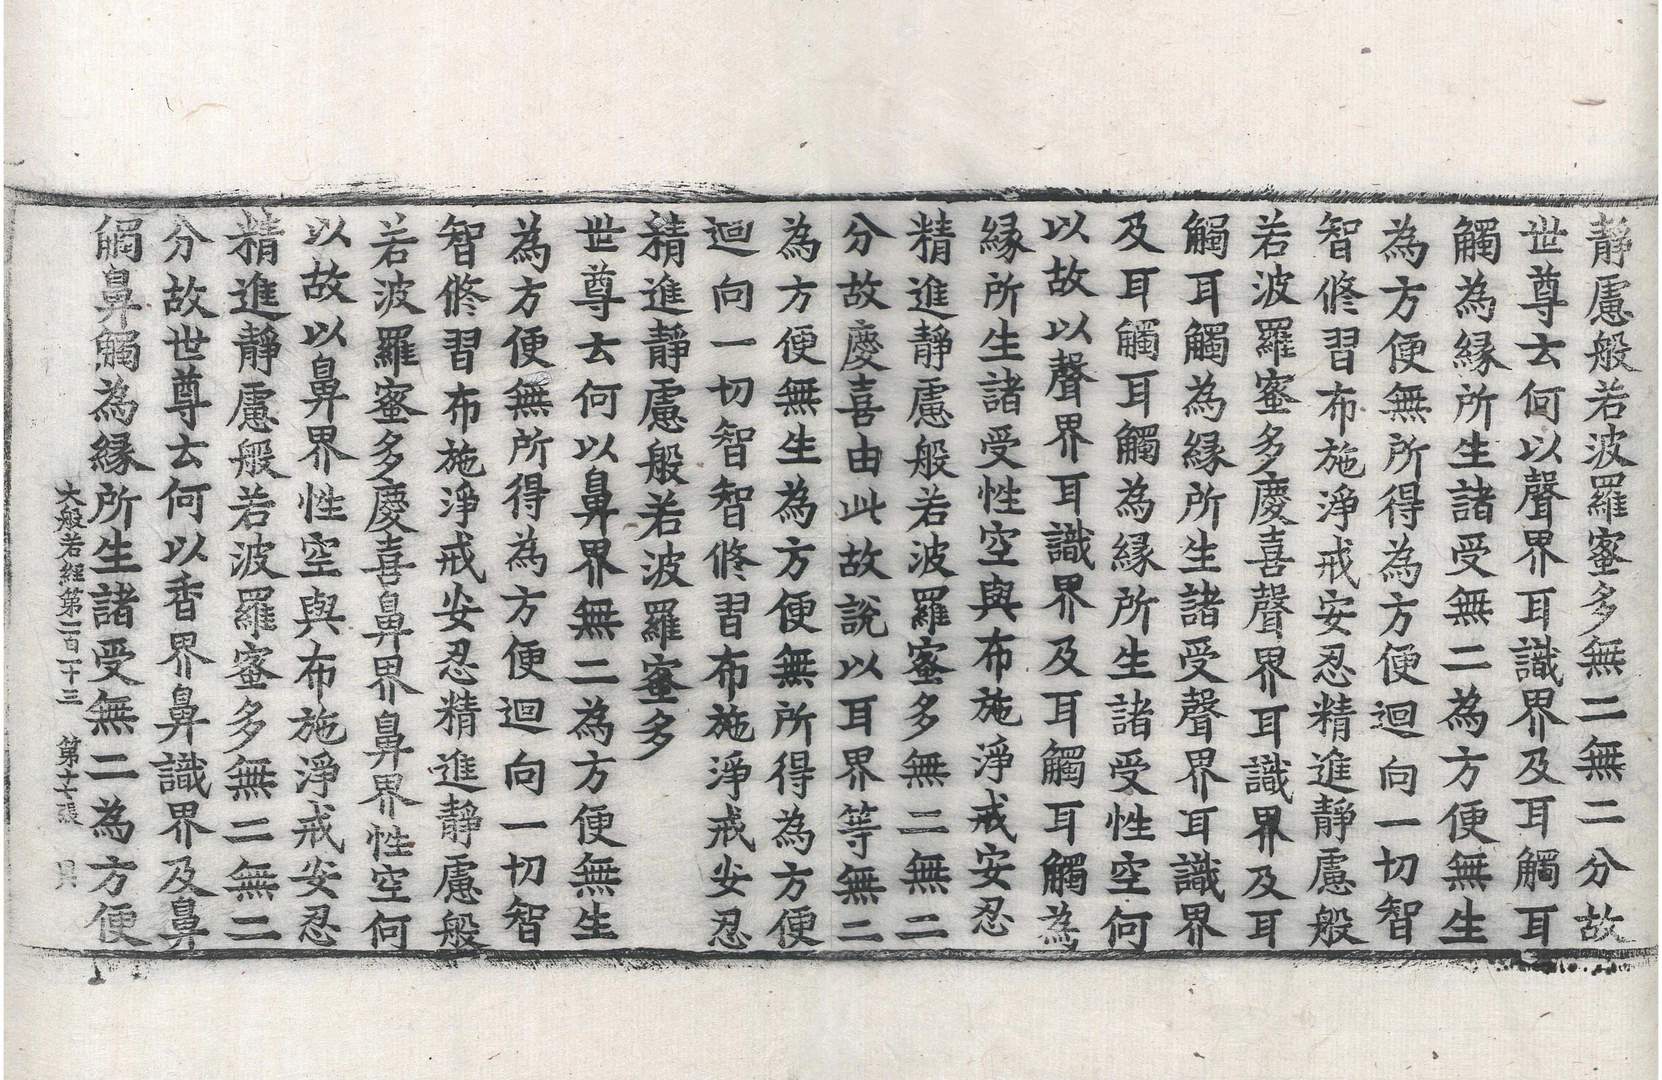 靜慮般若波羅蜜多無二無二分故
世尊云何以聲界耳識界及耳觸耳
觸為緣所生諸受無二為方便無生
為方便無所得為方便迴向一切智
智修習布施淨戒安忍精進靜慮般
若波羅蜜多慶喜聲界耳識界及耳
觸耳觸為緣所生諸受聲界耳識界
及耳觸耳觸為緣所生諸受性空何
以故以聲界耳識界及耳觸耳觸為
緣所生諸受性空與布施淨戒安忍
精進靜慮般若波羅蜜多無二無二
分故慶喜由此故說以耳界等無二
為方便無生為方便無所得為方便
迴向一切智智修習布施淨戒安忍
精進靜慮般若波羅蜜多
世尊云何以鼻界無二為方便無生
為方便無所得為方便迴向一切智
智修習布施淨戒安忍精進靜慮般
若波羅蜜多慶喜鼻界鼻界性空何
以故以鼻界性空與布施淨戒安忍
精進靜慮般若波羅蜜多無二無二
分故世尊云何以香界鼻識界及鼻
觸鼻觸為緣所生諸受無二為方便
大般若經第一百一十三 第十七張